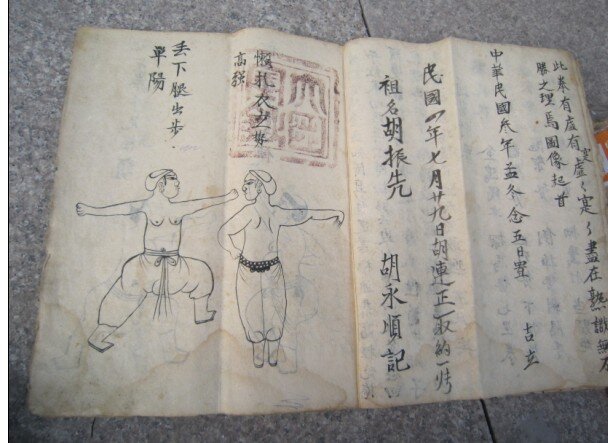 此拳有虛有實虛〻實〻盡在熟識無方
勝之理焉圖像起首
中華民國叁年孟冬念五日置
古立
民國 年七月廿九日胡連正
祖名胡振先 胡永順記
懶扎衣少
高强
丢下腿出步
單陽